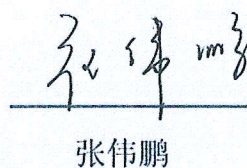 张伟鹏
张伟鹏